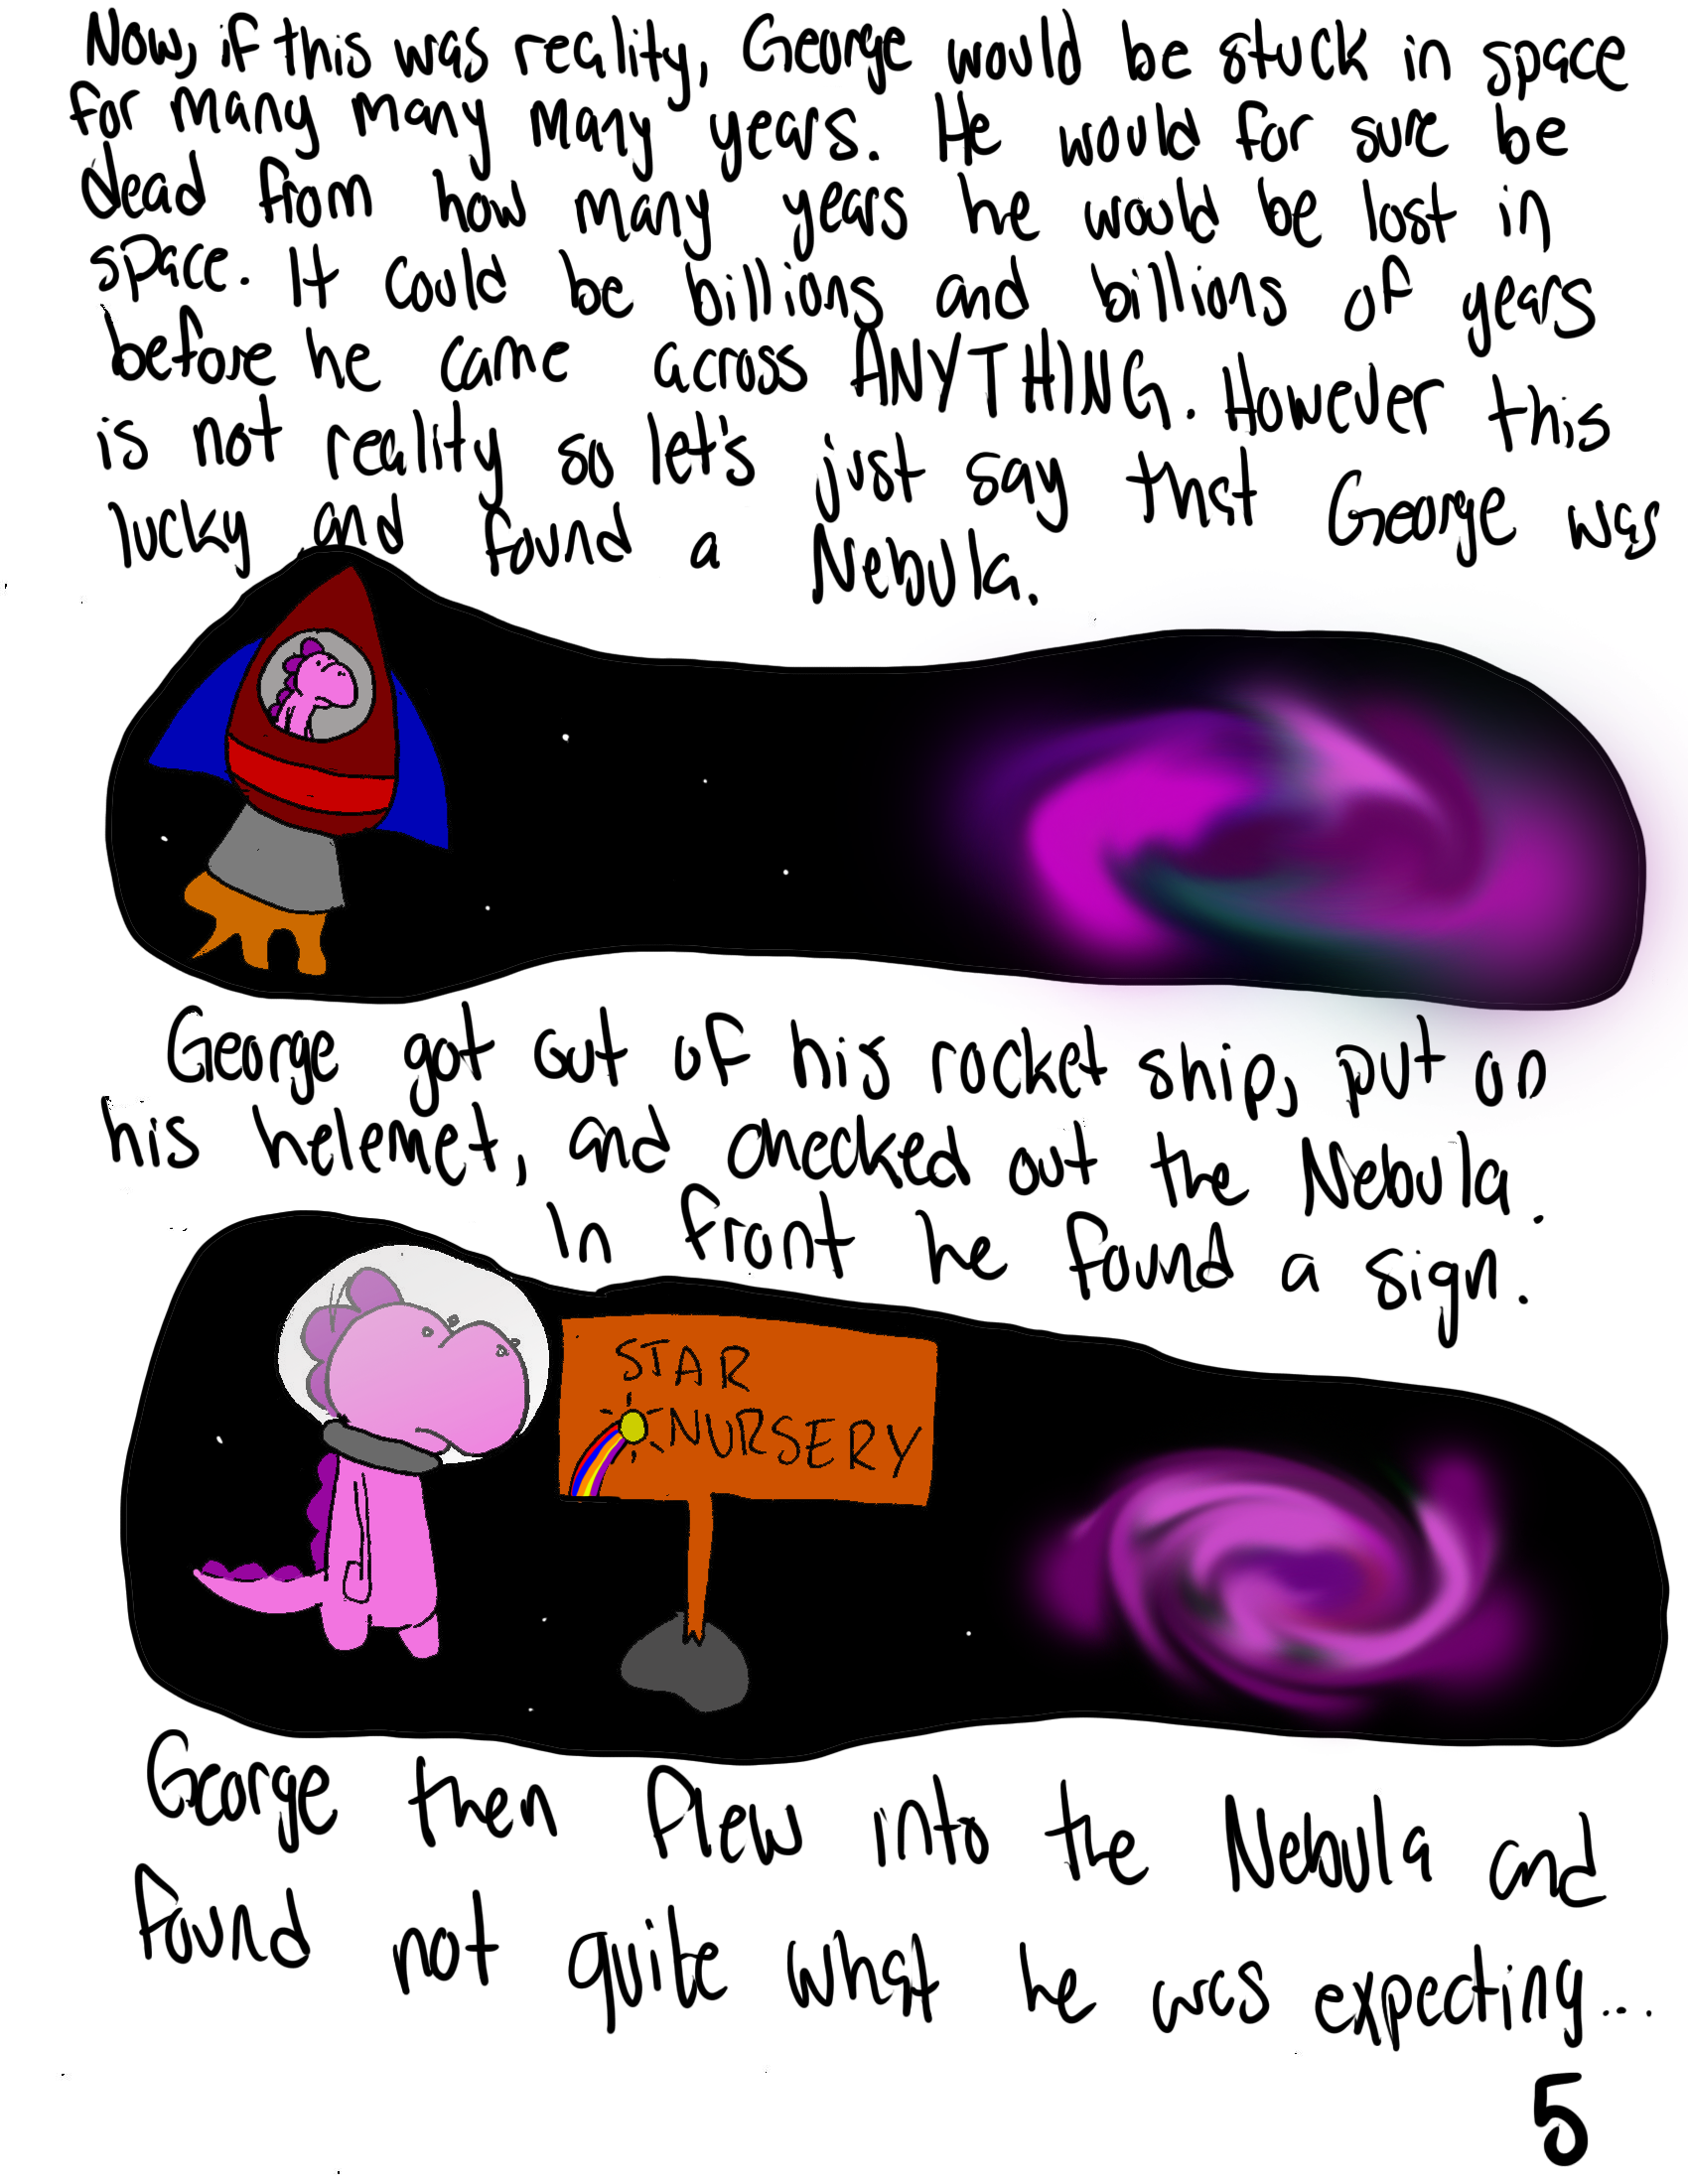 Now, if this was reality, George would be stuck in space
for many many many years. He would for sure be
dead from how many years he would be lost in
space. It could be billions and billions of years
before he came across ANYTHING. However this
is not reality so let's just say that George was
lucky and found a Nebula.
George got out of his rocket ship, put on
his helemet, and checked out the Nebula.
In front he found a sign.
STAR
NURSERY
George then flew into the Nebula and
found not quite what he was expecting...
5